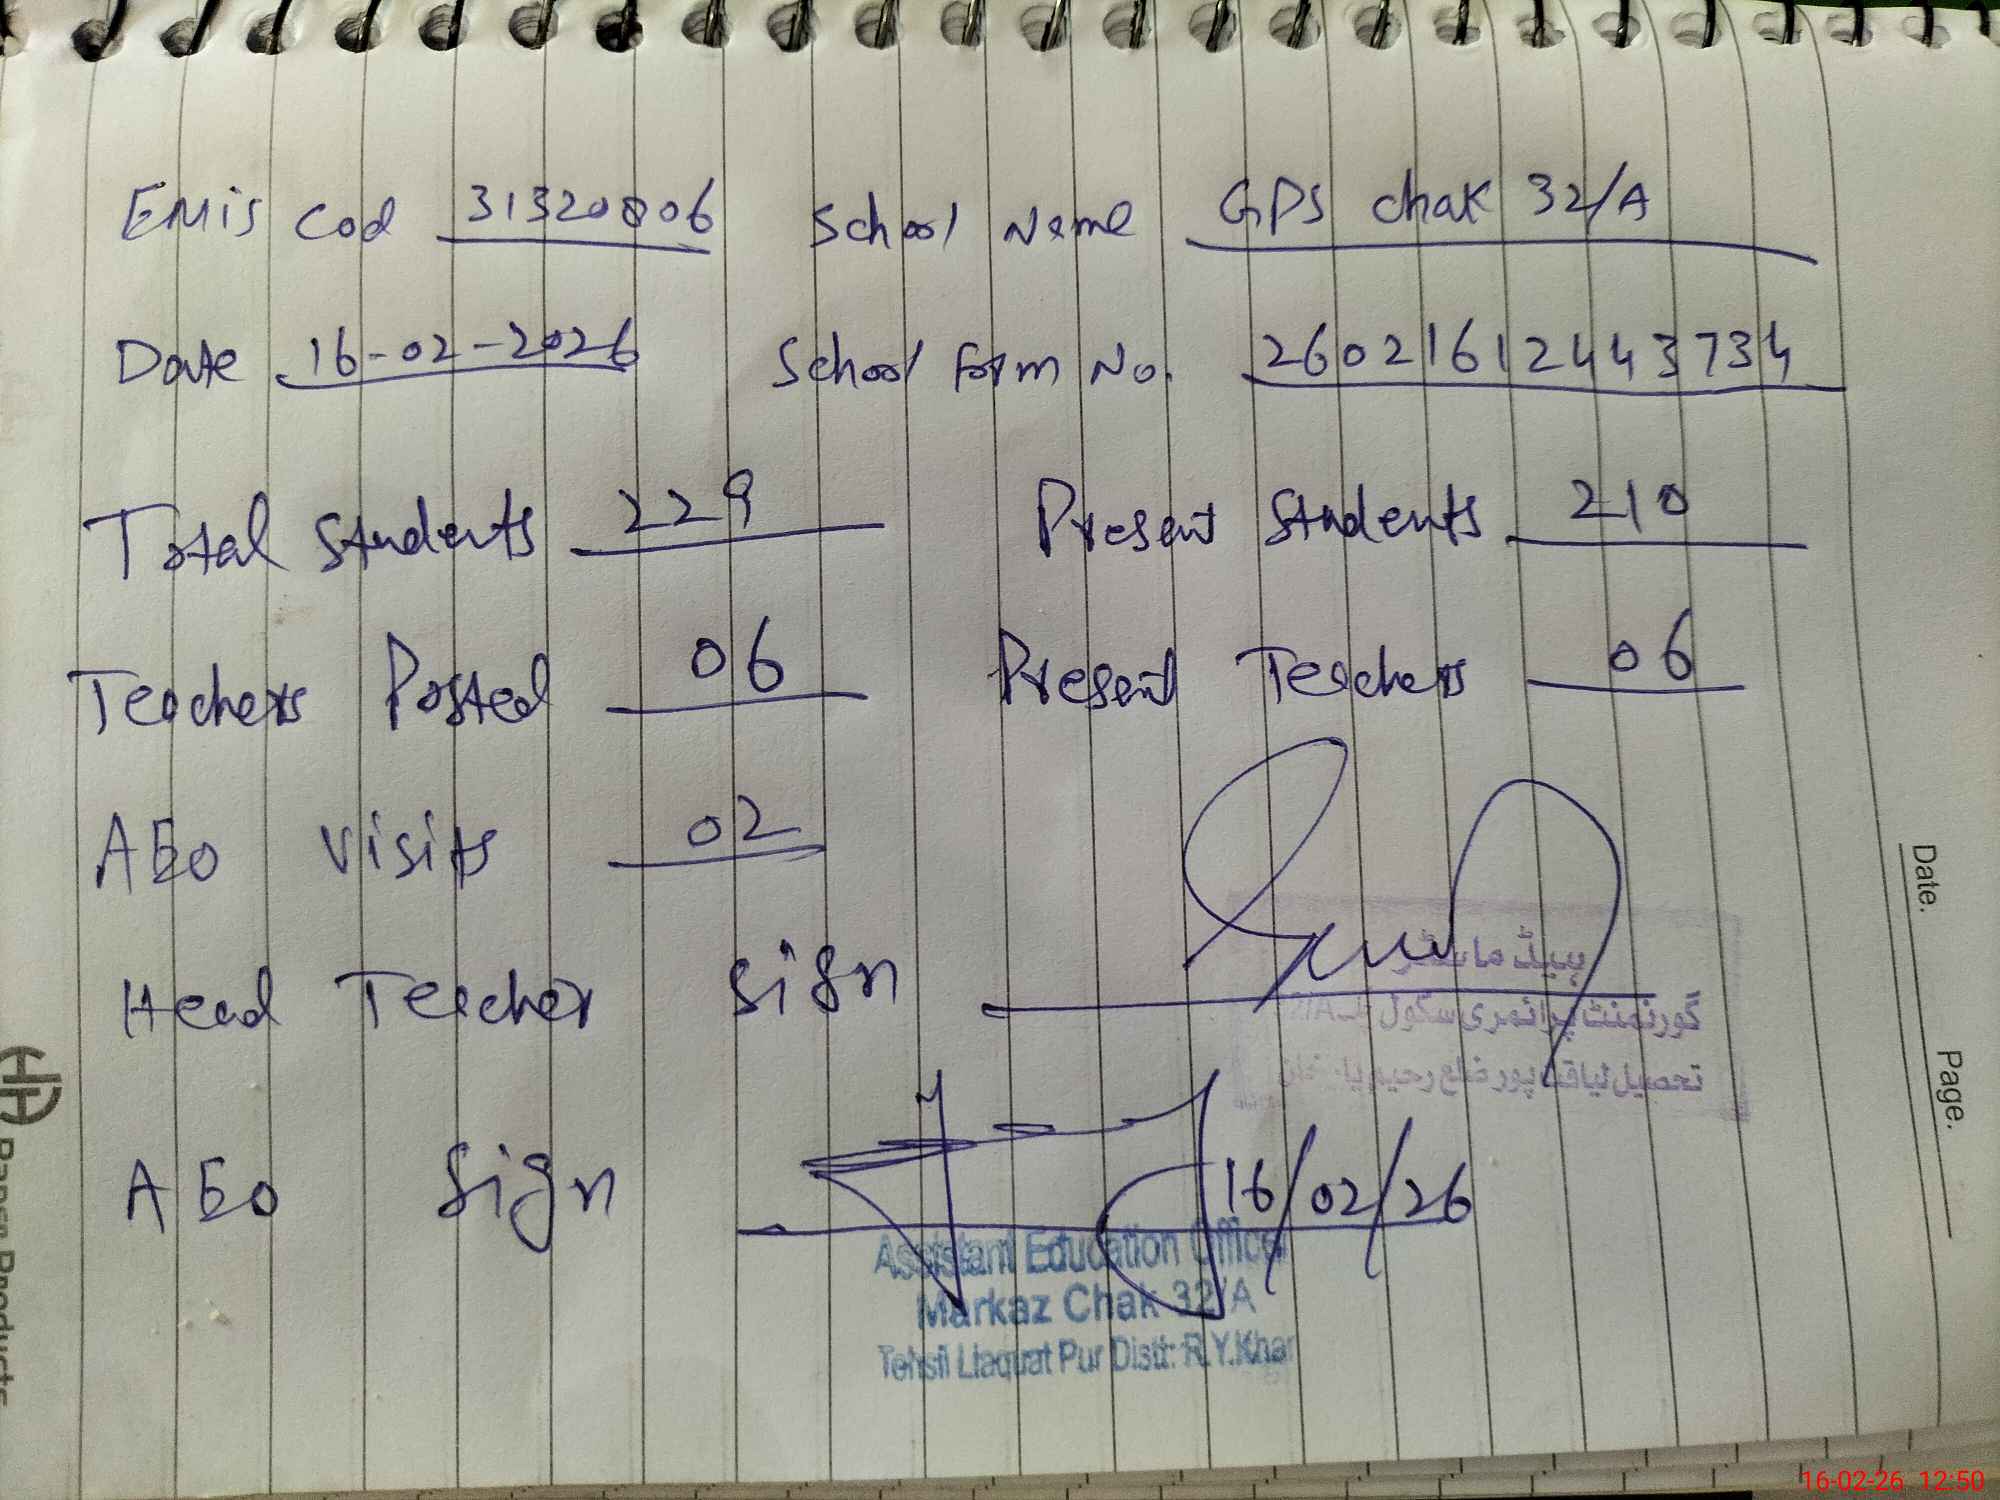 EMis Cod 31320006 School Name GPS Chak 32/A
Date 16-02-2026 School Form No. 26021612443734
Total Students 229 Present Students 210
Teachers Posted 06 Present Teachers 06
AEo Visits 02
Head Teacher Sign
ہیڈ ماسٹر
گورنمنٹ پرائمری سکول
تحصیل لیاقت پور ضلع رحیم یار خان
AEo Sign 16/02/26
Assistant Education Officer
Markaz Chak 32/A
Tehsil Liaquat Pur Distt: R.Y.Khan
Date.
Page.
16-02-26 12:50